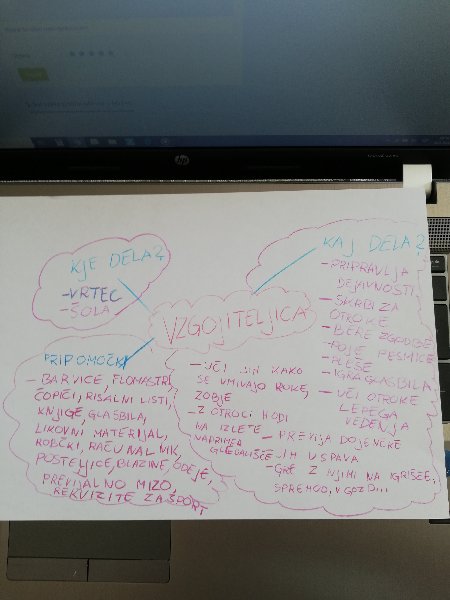 hp
KJE DELA?
-VRTEC
-ŠOLA
VZGOJITELJICA
KAJ DELA?
-PRIPRAVLJA
DEJAVNOSTI
-SKRBI ZA
OTROKE
-BERE ZGODBE
-POJE PESMICE
-PLEŠE
-IGRA GLASBILA
-UČI OTROKE
LEPEGA
VEDENJA
-UČI JIH KAKO
SE UMIVAJO ROKE,
ZOBJE
-Z OTROCI HODI
NA IZLETE
NAPRIMER
GLEDALIŠČE
-PREVIJA DOJENČKE
JIH USPAVA
-GRE Z NJIMI NA IGRIŠČE,
SPREHOD, V GOZD...
PRIPOMOČKI
-BARVICE, FLOMASTRI,
ČOPIČI, RISALNI LISTI,
KNJIGE, GLASBILA,
LIKOVNI MATERIJAL,
ROBČKI, RAČUNALNIK,
POSTELJICE, BLAZINE, ODEJE,
PREVIJALNO MIZO,
REKVIZITE ZA ŠPORT